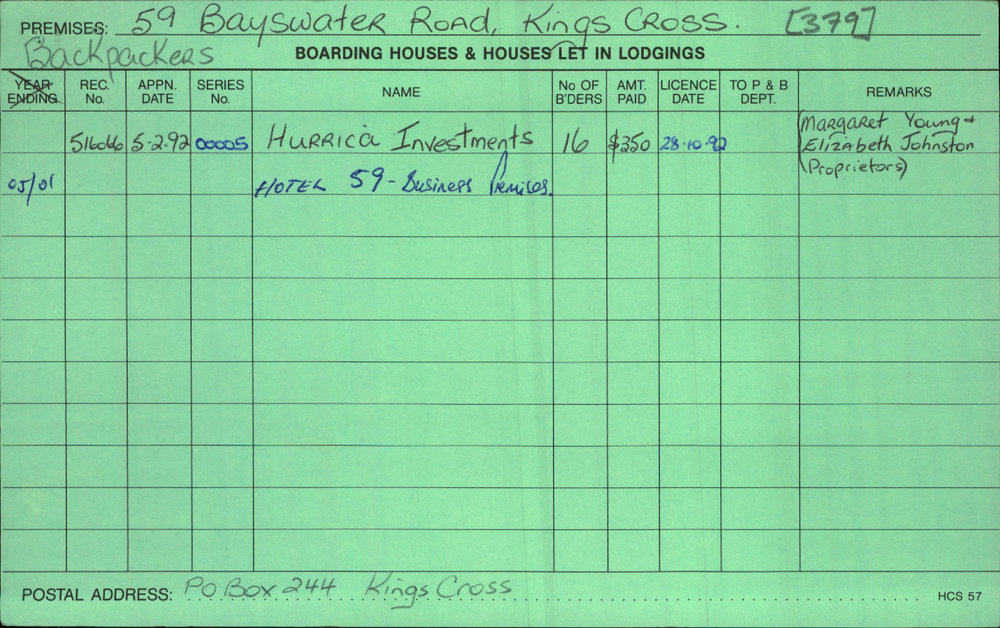 PREMISES: 59 Bayswater Road, Kings Cross. [379]
Backpackers
BOARDING HOUSES & HOUSES LET IN LODGINGS
YEAR ENDING REC. No. APPN. DATE SERIES No. NAME No OF B'DERS AMT. PAID LICENCE DATE TO P & B DEPT. REMARKS
516066 5-2-92 00005 Hurrica Investments 16 $350 28-10-92 Margaret Young & Elizabeth Johnston (Proprietors)
05/01 HOTEL 59 - Business Premises.
POSTAL ADDRESS: PO Box 244 Kings Cross
HCS 57